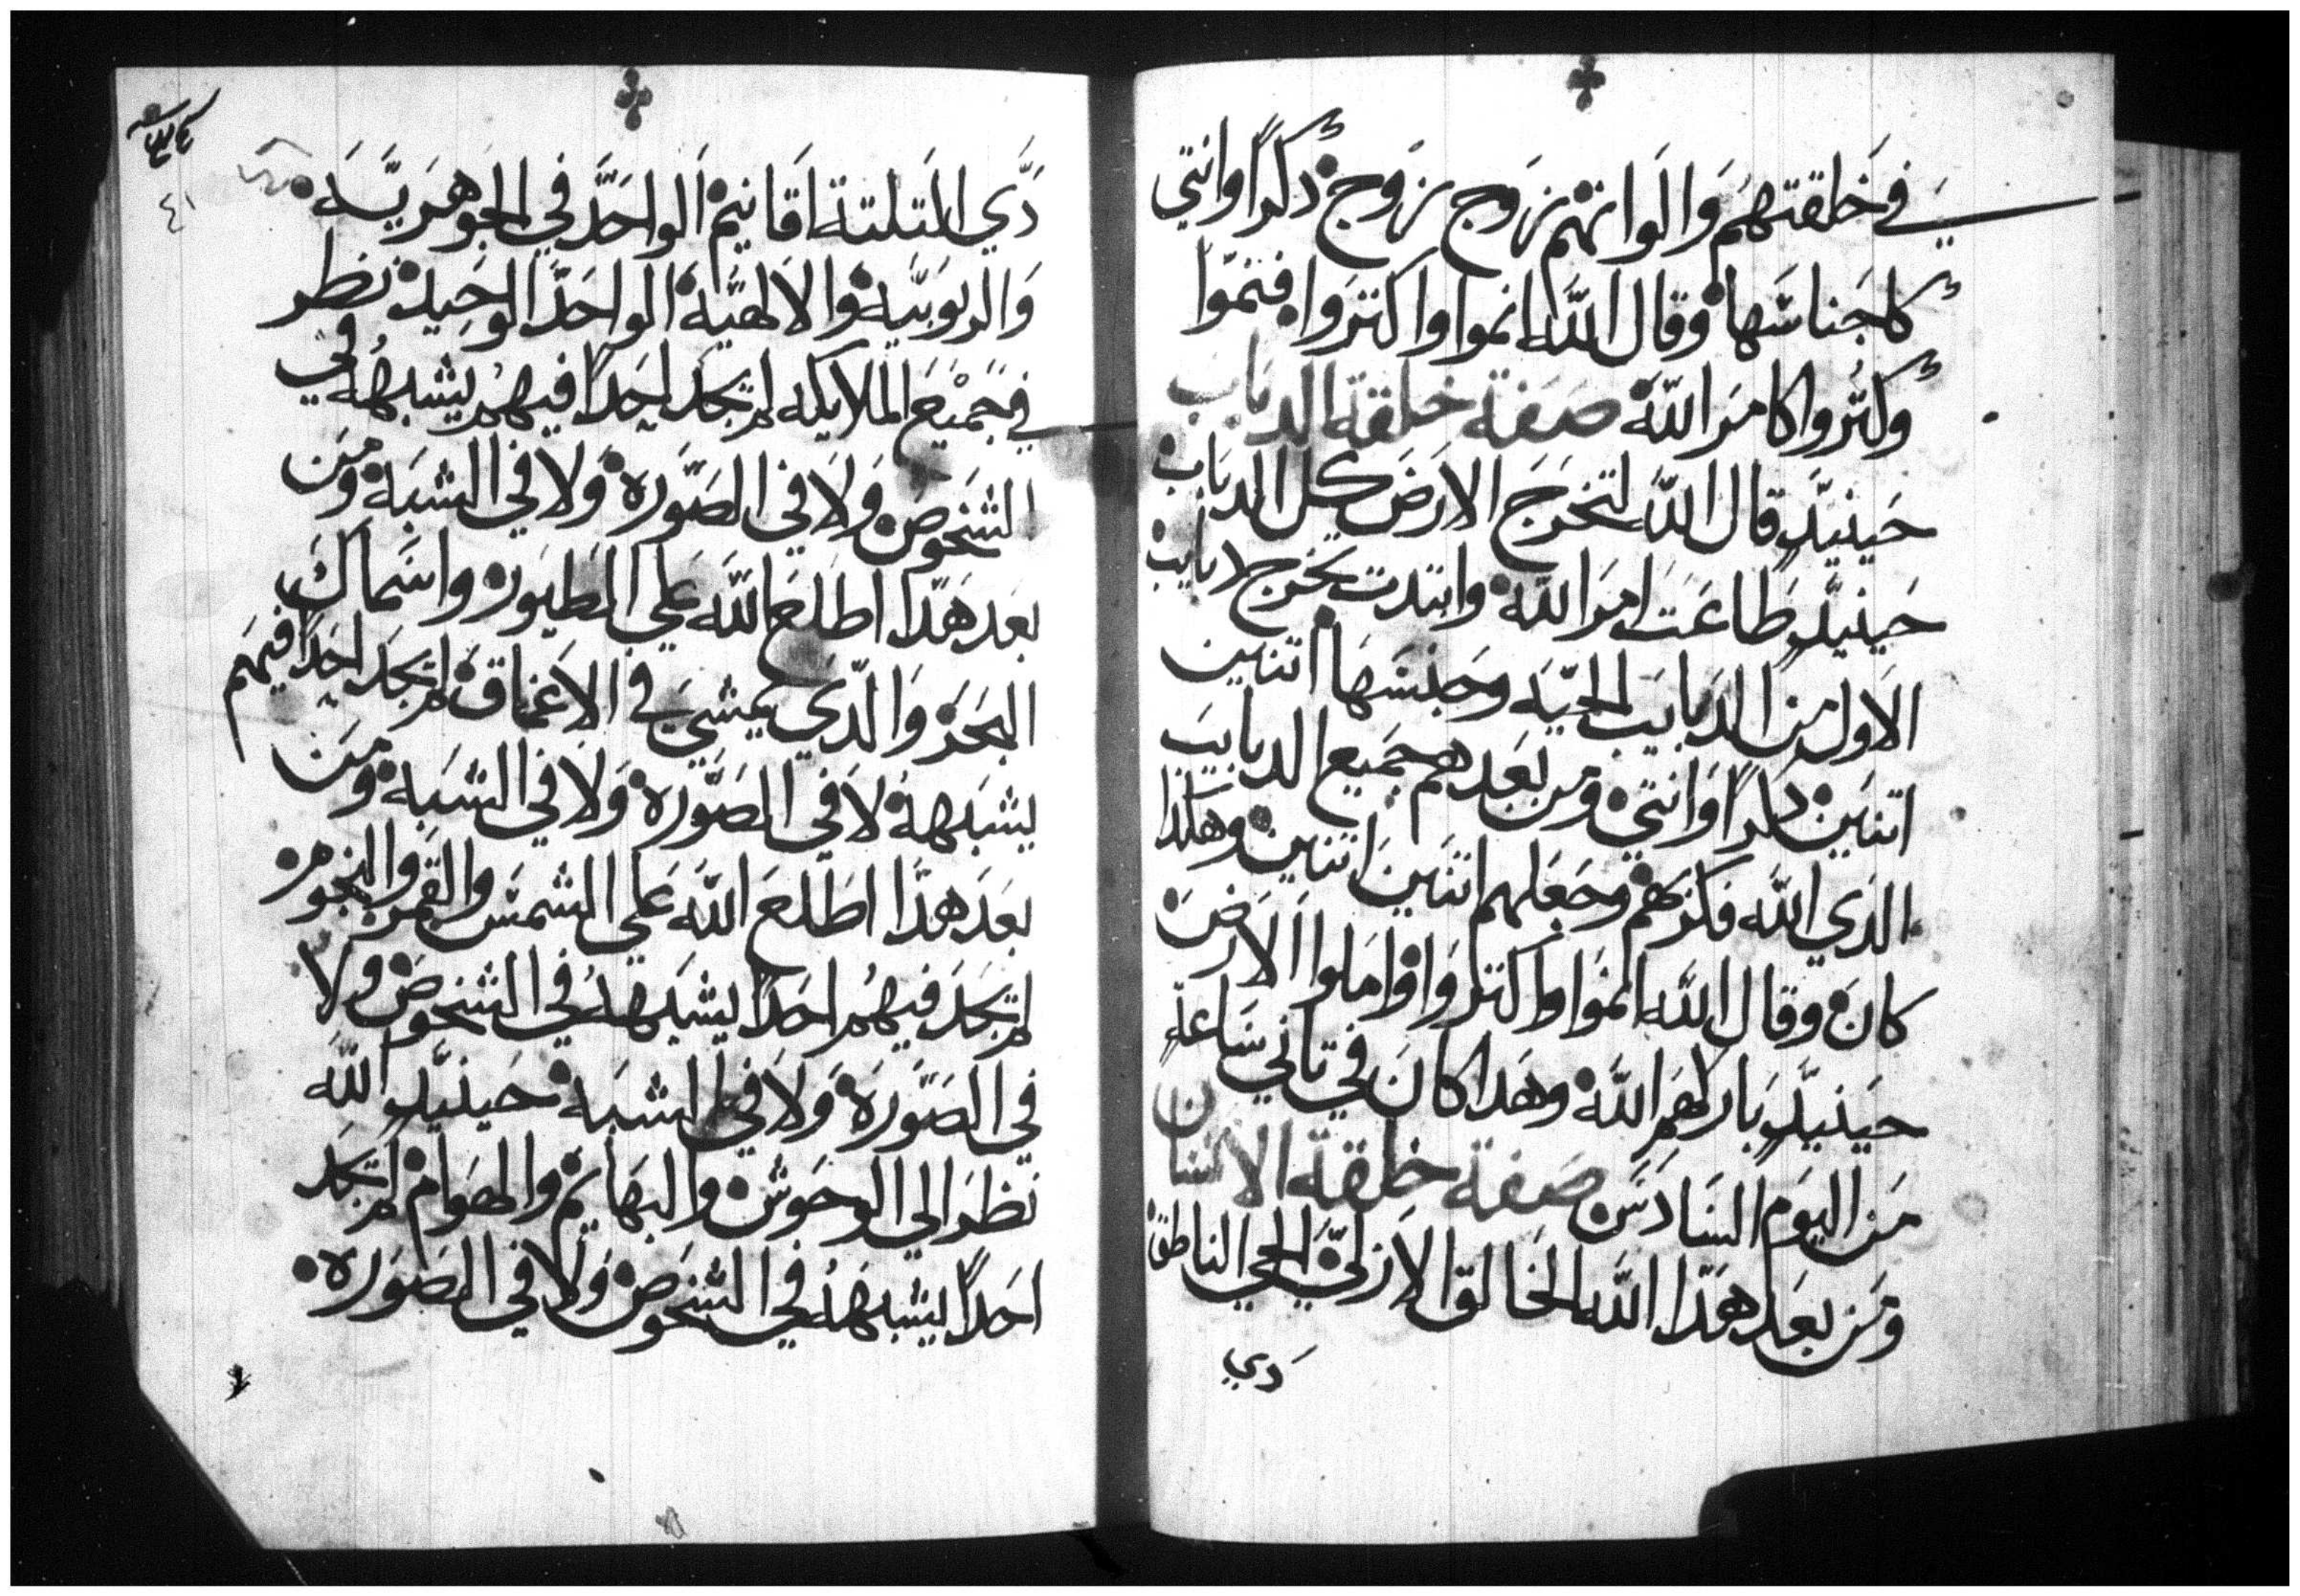 في خلقتهم والوانهم زوج زوج دكرا وانتي
كاجناسها وقال الله انموا واكتروا فنموا
وكتروا كامر الله صفة خلقة الدباب
حينيد قال الله لتخرج الارض كل الدباب
حينيد طاعت امر الله وابتدت بخرج لابايب
الاول من الدبابيب الحيه وجنسها اتنين
اتنين دكرا وانتي ومن بعدهم جميع الدبابيب
الدي الله فكرهم وجعلهم اتنين اتنين وهكدا
كان وقال الله انموا واكتروا واملوا الارض
حينيد باركهم الله وهدا كان في تاني ساعة
من اليوم السادس صفة خلقة الانسان
ومن بعد هدا الله الخالق الازلي الحي الناطق
دي
دي المتلتة اقانيم الواحد في الجوهريه
والربوبيه والالهيه الواحد الوحيد نظر
في جميع الملايكه لم تجد احدا فيهم يشبهه في
الشخوص ولا في الصوره ولا في الشبه ومن
بعد هدا اطلع الله علي الطيور واسماك
البحر والدي يمشي في الاعماق لم تجد احدا فيهم
يشبهه لا في الصوره ولا في الشبه ومن
بعد هدا اطلع الله علي الشمس والقمر والنجوم
لم تجد فيهم احدا يشبهه في الشخوص ولا
في الصوره ولا في الشبه حينيد الله
نظر الي الوحوش والبهايم والهوام لم تجد
احدا يشبهه في الشخوص ولا في الصوره
٤١